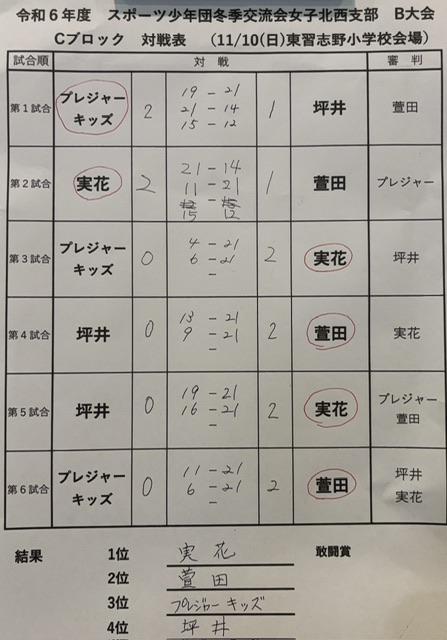 令和6年度 スポーツ少年団冬季交流会女子北西支部 B大会
Cブロック 対戦表 (11/10(日)東習志野小学校会場)
試合順 対戦 審判
第1試合 プレジャーキッズ 2 19-21 21-14 15-12 1 坪井 萱田
第2試合 実花 2 21-14 11-21 15-12 1 萱田 プレジャー
第3試合 プレジャーキッズ 0 4-21 6-21 - 2 実花 坪井
第4試合 坪井 0 13-21 9-21 - 2 萱田 実花
第5試合 坪井 0 19-21 16-21 - 2 実花 プレジャー 萱田
第6試合 プレジャーキッズ 0 11-21 6-21 - 2 萱田 坪井 実花
結果 1位 実花 敢闘賞
2位 萱田
3位 プレジャーキッズ
4位 坪井